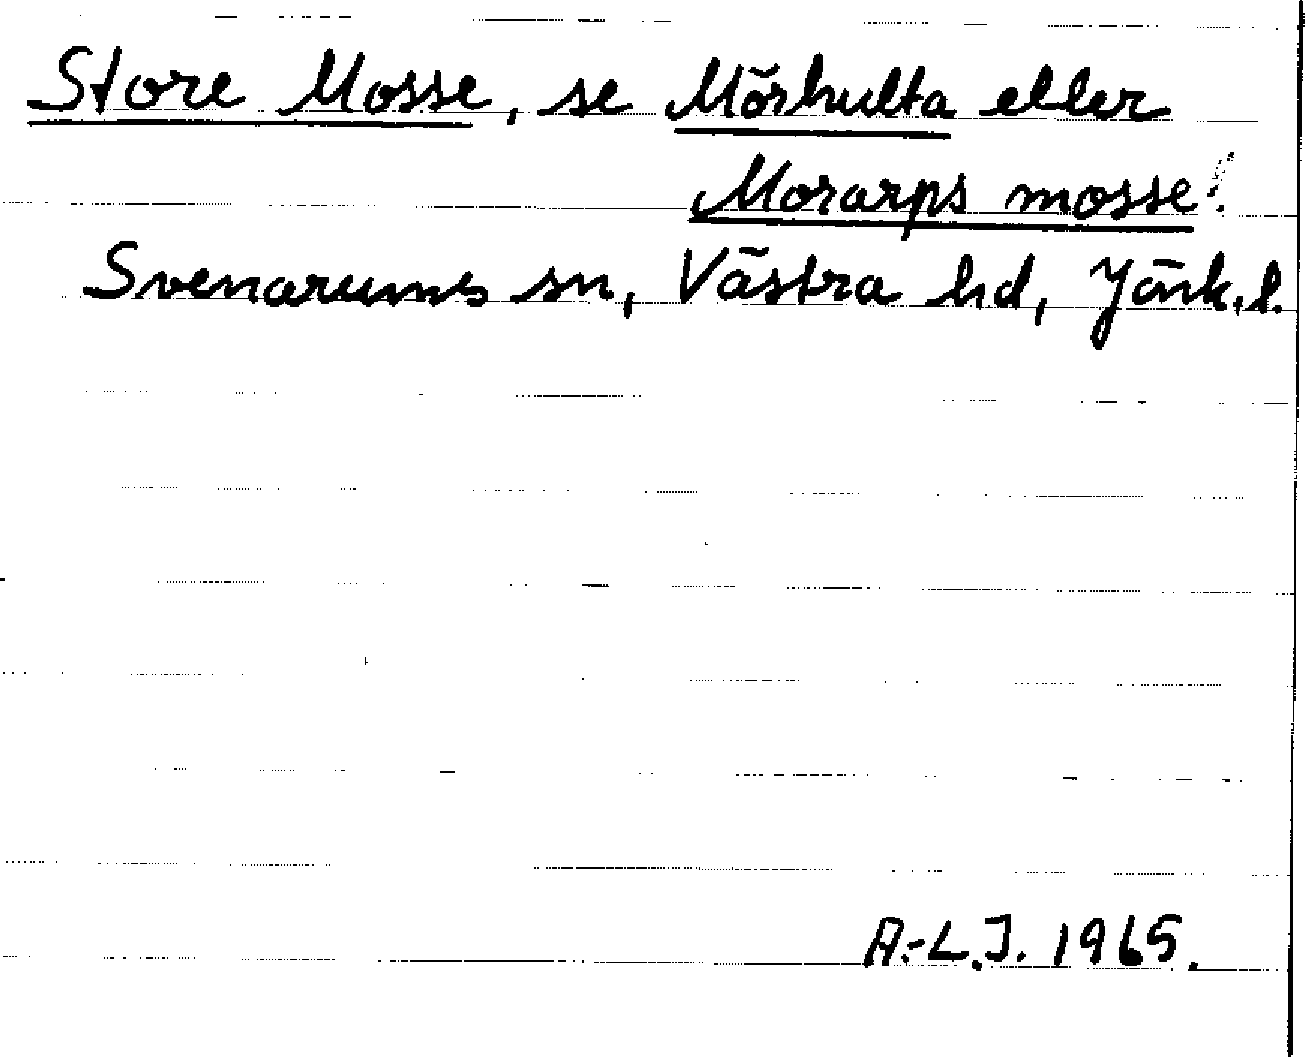 Store Mosse, se Mörhulta eller
Morarps mosse!
Svenarums sn, Västra hd, Jönk. l.
A.-L.J. 1965.